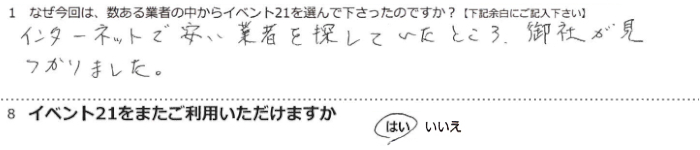 1 なぜ今回は、数ある業者の中からイベント21を選んで下さったのですか？【下記余白にご記入下さい】
インターネットで安い業者を探していたところ、御社が見
つかりました。
8 イベント21をまたご利用いただけますか
はい いいえ